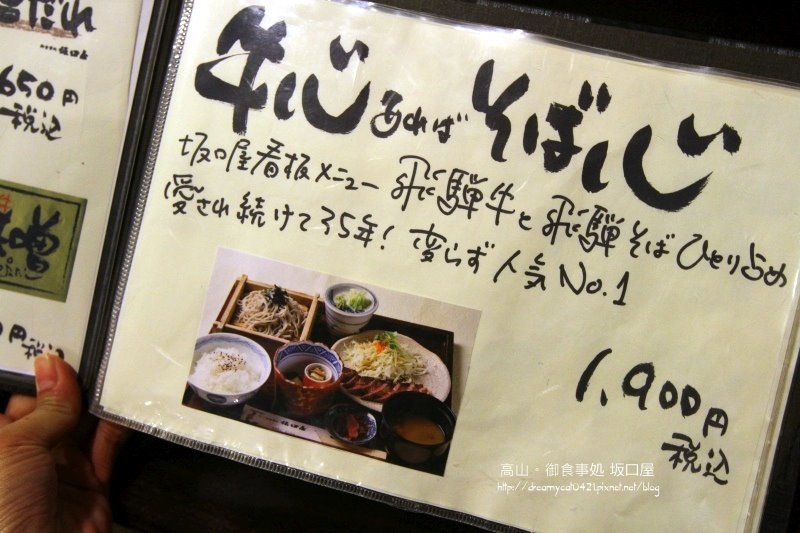 だれ
坂口屋
650円
税込
味噌
円
税込
牛心あればそば心
坂口屋看板メニュー 飛騨牛と飛騨そばひとり占め
愛され続けて35年！変らず人気No.1
1,900円
税込
高山。御食事処 坂口屋
http://dreamycat0421.pixnet.net/blog